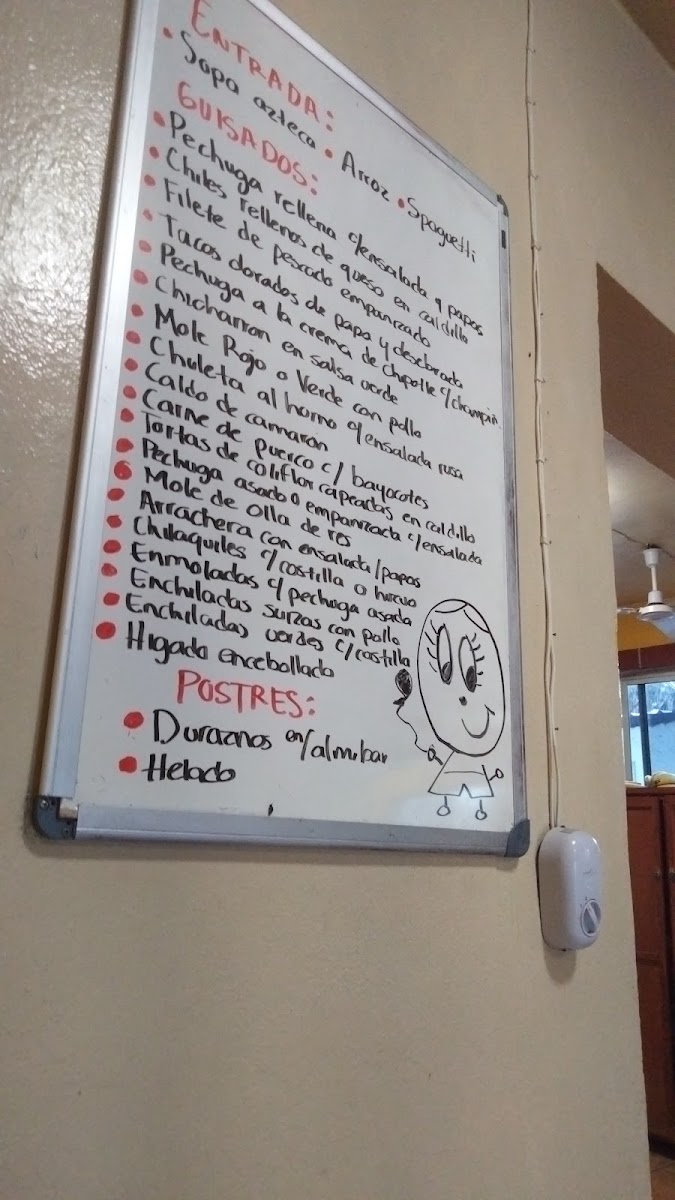 ENTRADA:
• Sopa azteca • Arroz • Spaguetti
GUISADOS:
• Pechuga rellena c/ensalada y papas
• Chiles rellenos de queso en caldillo
• Filete de pescado empanizado
• Tacos dorados de papa y desebrada
• Pechuga a la crema de chipotle c/champiñ.
• Chicharron en salsa verde
• Mole Rojo o Verde con pollo
• Chuleta al horno c/ensalada rusa
• Caldo de camaron
• Carne de puerco c/ bayocotes
• Tortas de coliflor capeadas en caldillo
• Pechuga asada o empanizada c/ensalada
• Mole de olla de res
• Arrachera con ensalada/papas
• Chilaquiles c/costilla o huevo
• Enmoladas c/ pechuga asada
• Enchiladas suizas con pollo
• Enchiladas verdes c/costilla
• Higado encebollado
POSTRES:
• Duraznos en/almibar
• Helado